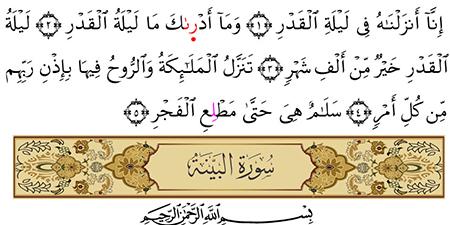 إِنَّآ أَنزَلْنَٰهُ فِى لَيْلَةِ ٱلْقَدْرِ ﴿١﴾ وَمَآ أَدْرِىٰكَ مَا لَيْلَةُ ٱلْقَدْرِ ﴿٢﴾ لَيْلَةُ
ٱلْقَدْرِ خَيْرٌ مِّنْ أَلْفِ شَهْرٍ ﴿٣﴾ تَنَزَّلُ ٱلْمَلَٰٓئِكَةُ وَٱلرُّوحُ فِيهَا بِإِذْنِ رَبِّهِم
مِّن كُلِّ أَمْرٍ ﴿٤﴾ سَلَٰمٌ هِىَ حَتَّىٰ مَطْلِعِ ٱلْفَجْرِ ﴿٥﴾
سُورَةُ البَيِّنَةِ
بِسْمِ اللَّهِ الرَّحْمَٰنِ الرَّحِيمِ